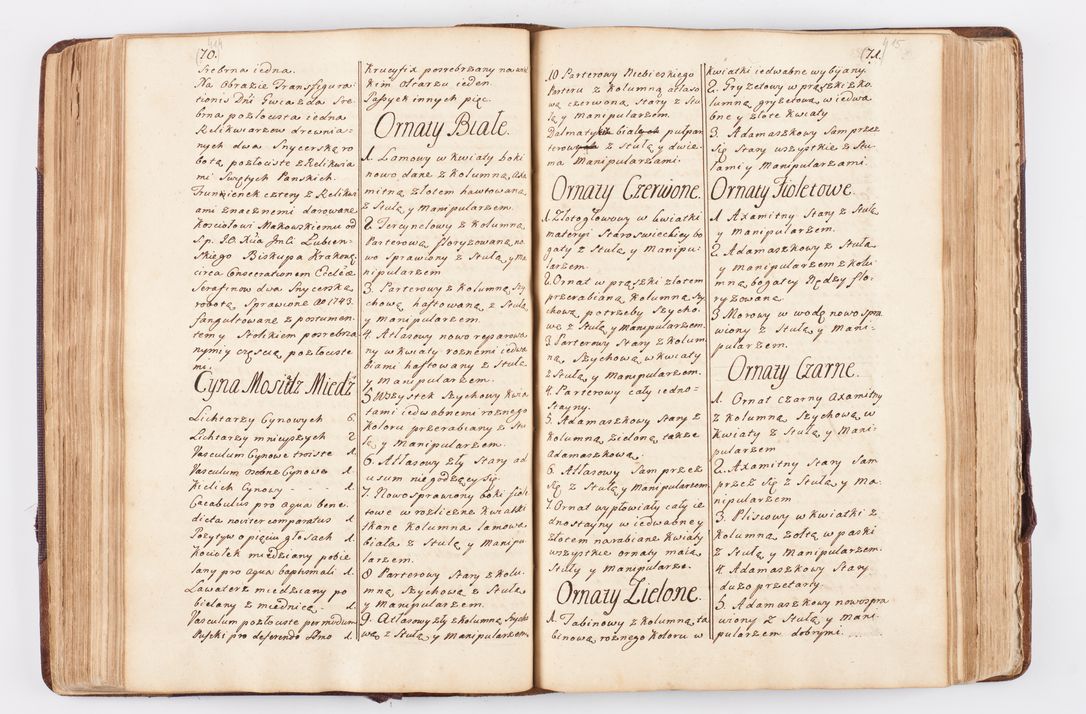 (70.
414
Srebrna iedna.
Na Obrazie Transfigura-
tionis Dni Gwiazda Sre-
brna pozłocista iedna
Relikwiarzow drewnia-
nych dwa Snycerską ro-
botą pozłociste z Relikwia
mi Swiętych Panskich.
Trunkienek cztery z Relikwi
ami znacznemi darowane
Kosciołowi Makowskiemu od
Sp. J.O. Xcia Jmści Łubien-
skiego Biskupa Krakow.
circa Consecrationem Ecclæ
Serafinow dwa Snycerską
robotą Sprawione Ao 1743.
z postumen-
tem y Stolikiem posrebrza
nymi y częscią pozłociste
mi.
Cyna Mosiądz Miedź
Lichtarzy Cynowych 6.
Lichtarzy mnieyszych 2
Vasculum Cynowe troiste 1.
Vasculum osobne Cynowe 1.
Kielich Cynowy - - - 1.
Cacabulus pro aqua bene.
dicta noviter comparatus 1.
Pozytyw o pięciu głosach 1.
Kociołek miedziany pobie
lany pro aqua baptismali 1.
Lawaterz miedziany po
bielany z miednicą 1.
Vasculum pozłociste per modum
Puszki pro deferendo Smo 1.
Krucyfix posrebrzany na wiel
kim Ołtarzu ieden.
Passyek innych pięc.
Ornaty Białe.
1. Lamowy w kwiaty boki
nowo dane z kolumną Axa
mitną złotem hawtowaną
z Stułą y Manipularzem.
2. Tercynelowy z kolumną
Parterową floryzowaną no.
wo Sprawiony z Stułą y Ma
nipularzem
3. Parterowy z kolumną Szy
chową haftowaną z Stułą
y Manipularzem.
4. Atłasowy nowo reparowa
ny w kwiaty roznemi iedwa
biami haftowany z Stułą
y Manipularzem.
5. Wszystek Szychowy kwia
tami iedwabnemi roznego
koloru przerabiany z Stu
łą y Manipularzem.
6. Atłasowy zły Stary ad
usum niegodzący się.
7. Nowo sprawiony boki fiole
towe w rozliczne kwiatki
tkane Kolumna lamowa
biała z Stułą y Manipu
larzem.
8 Parterowy Stary z kolu-
mną Szychową z Stułą
y Manipularzem.
9. Atłasowy zły z kolumną Szycho
wą z Stułą y Manipularzem
(71.
415
10 Parterowy Niebieskiego
Parteru z kolumną atłaso
wą czerwoną Stary z Stu
łą y Manipularzem.
Dalmatyk białych pulpar
terowych z Stułą y dwie-
ma Manipularzami.
Ornaty Czerwone.
1. Złotogłowowy w kwiatki
materyi Staroswieckiey bo
gaty z Stułą y Manipu-
larzem.
2. Ornat w prążki złotem
przerabianą kolumną Szy
chową potrzeby Szycho-
we z Stułą y Manipularzem.
3. Parterowy Stary z kolum
ną Szychową w kwiaty
z Stułą y Manipularzem.
4. Parterowy cały iedno-
stayny.
5. Adamaszkowy Stary z
kolumną zieloną także
Adamaszkową.
6. Atłasowy Sam przez
Się z Stułą y Manipularzem
7. Ornat wypłowiały cały ie
dnostayny w iedwabne y
złotem narabiane kwiaty
wszystkie ornaty maią
Stuły y Manipularze.
Ornaty Zielone.
1. Tabinowy z kolumną ta
binową roznego koloru w
kwiatki iedwabne wybyany.
2. Gryzetowy w prążki z ko.
lumną gryzetową w iedwa
bne y złote kwiaty
3. Adamaszkowy Sam przez
Się Stary wszystkie z Stu-
łami y Manipularzami.
Ornaty Fioletowe.
1. Axamitny Stary z Stułą
y Manipularzem.
2. Adamaszkowy z Stułą
y Manipularzem z kolu
mną bogatey flo-
ryzowaną
3. Morowy w wodę nowo spra
wiony z Stułą y Mani-
pularzem.
Ornaty Czarne.
1. Ornat Czarny Axamitny
z kolumną Szychową w
kwiaty z Stułą y Mani-
pularzem
2. Axamitny Stary Sam
przez się z Stułą y Ma-
nipularzem
3. Pliszowy w kwiatki z
kolumną żołtą w paski
z Stułą y Manipularzem.
4. Adamaszkowy Stary
dużo przetarty.
5. Adamaszkowy nowo spra
wiony z Stułą y Mani
pularzem dobrymi.